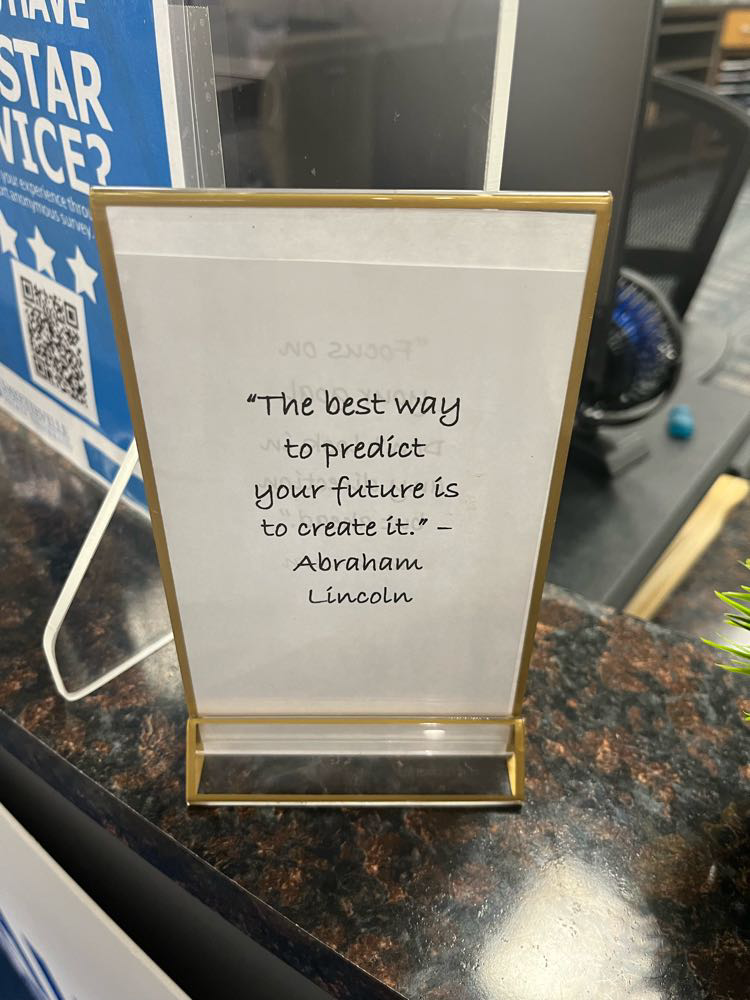 HAVE
STAR
VICE?
your experience
anonymous survey.
"Focus on
your goal
"The best way
to predict
your future is
to create it." –
Abraham
Lincoln